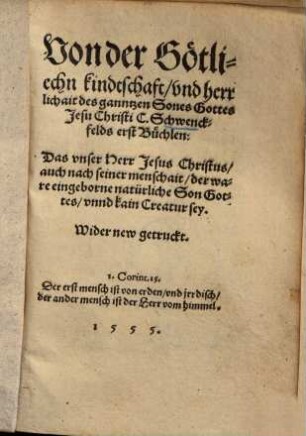 Von der Götli-
echn kindtschaft/vnd herr
lichait des ganntzen Sones Gottes
Jesu Christi C. Schwenck-
felds erst Büchlen:
Das vnser Herr Jesus Christus/
auch nach seiner menschait/der wa-
re eingeborne natürliche Son Got-
tes/vnnd kain Creatur sey.
Wider new getruckt.
1. Corint. 15.
Der erst mensch ist von erden/vnd jrdisch/
der ander mensch ist der Herr vom himmel.
1 5 5 5.